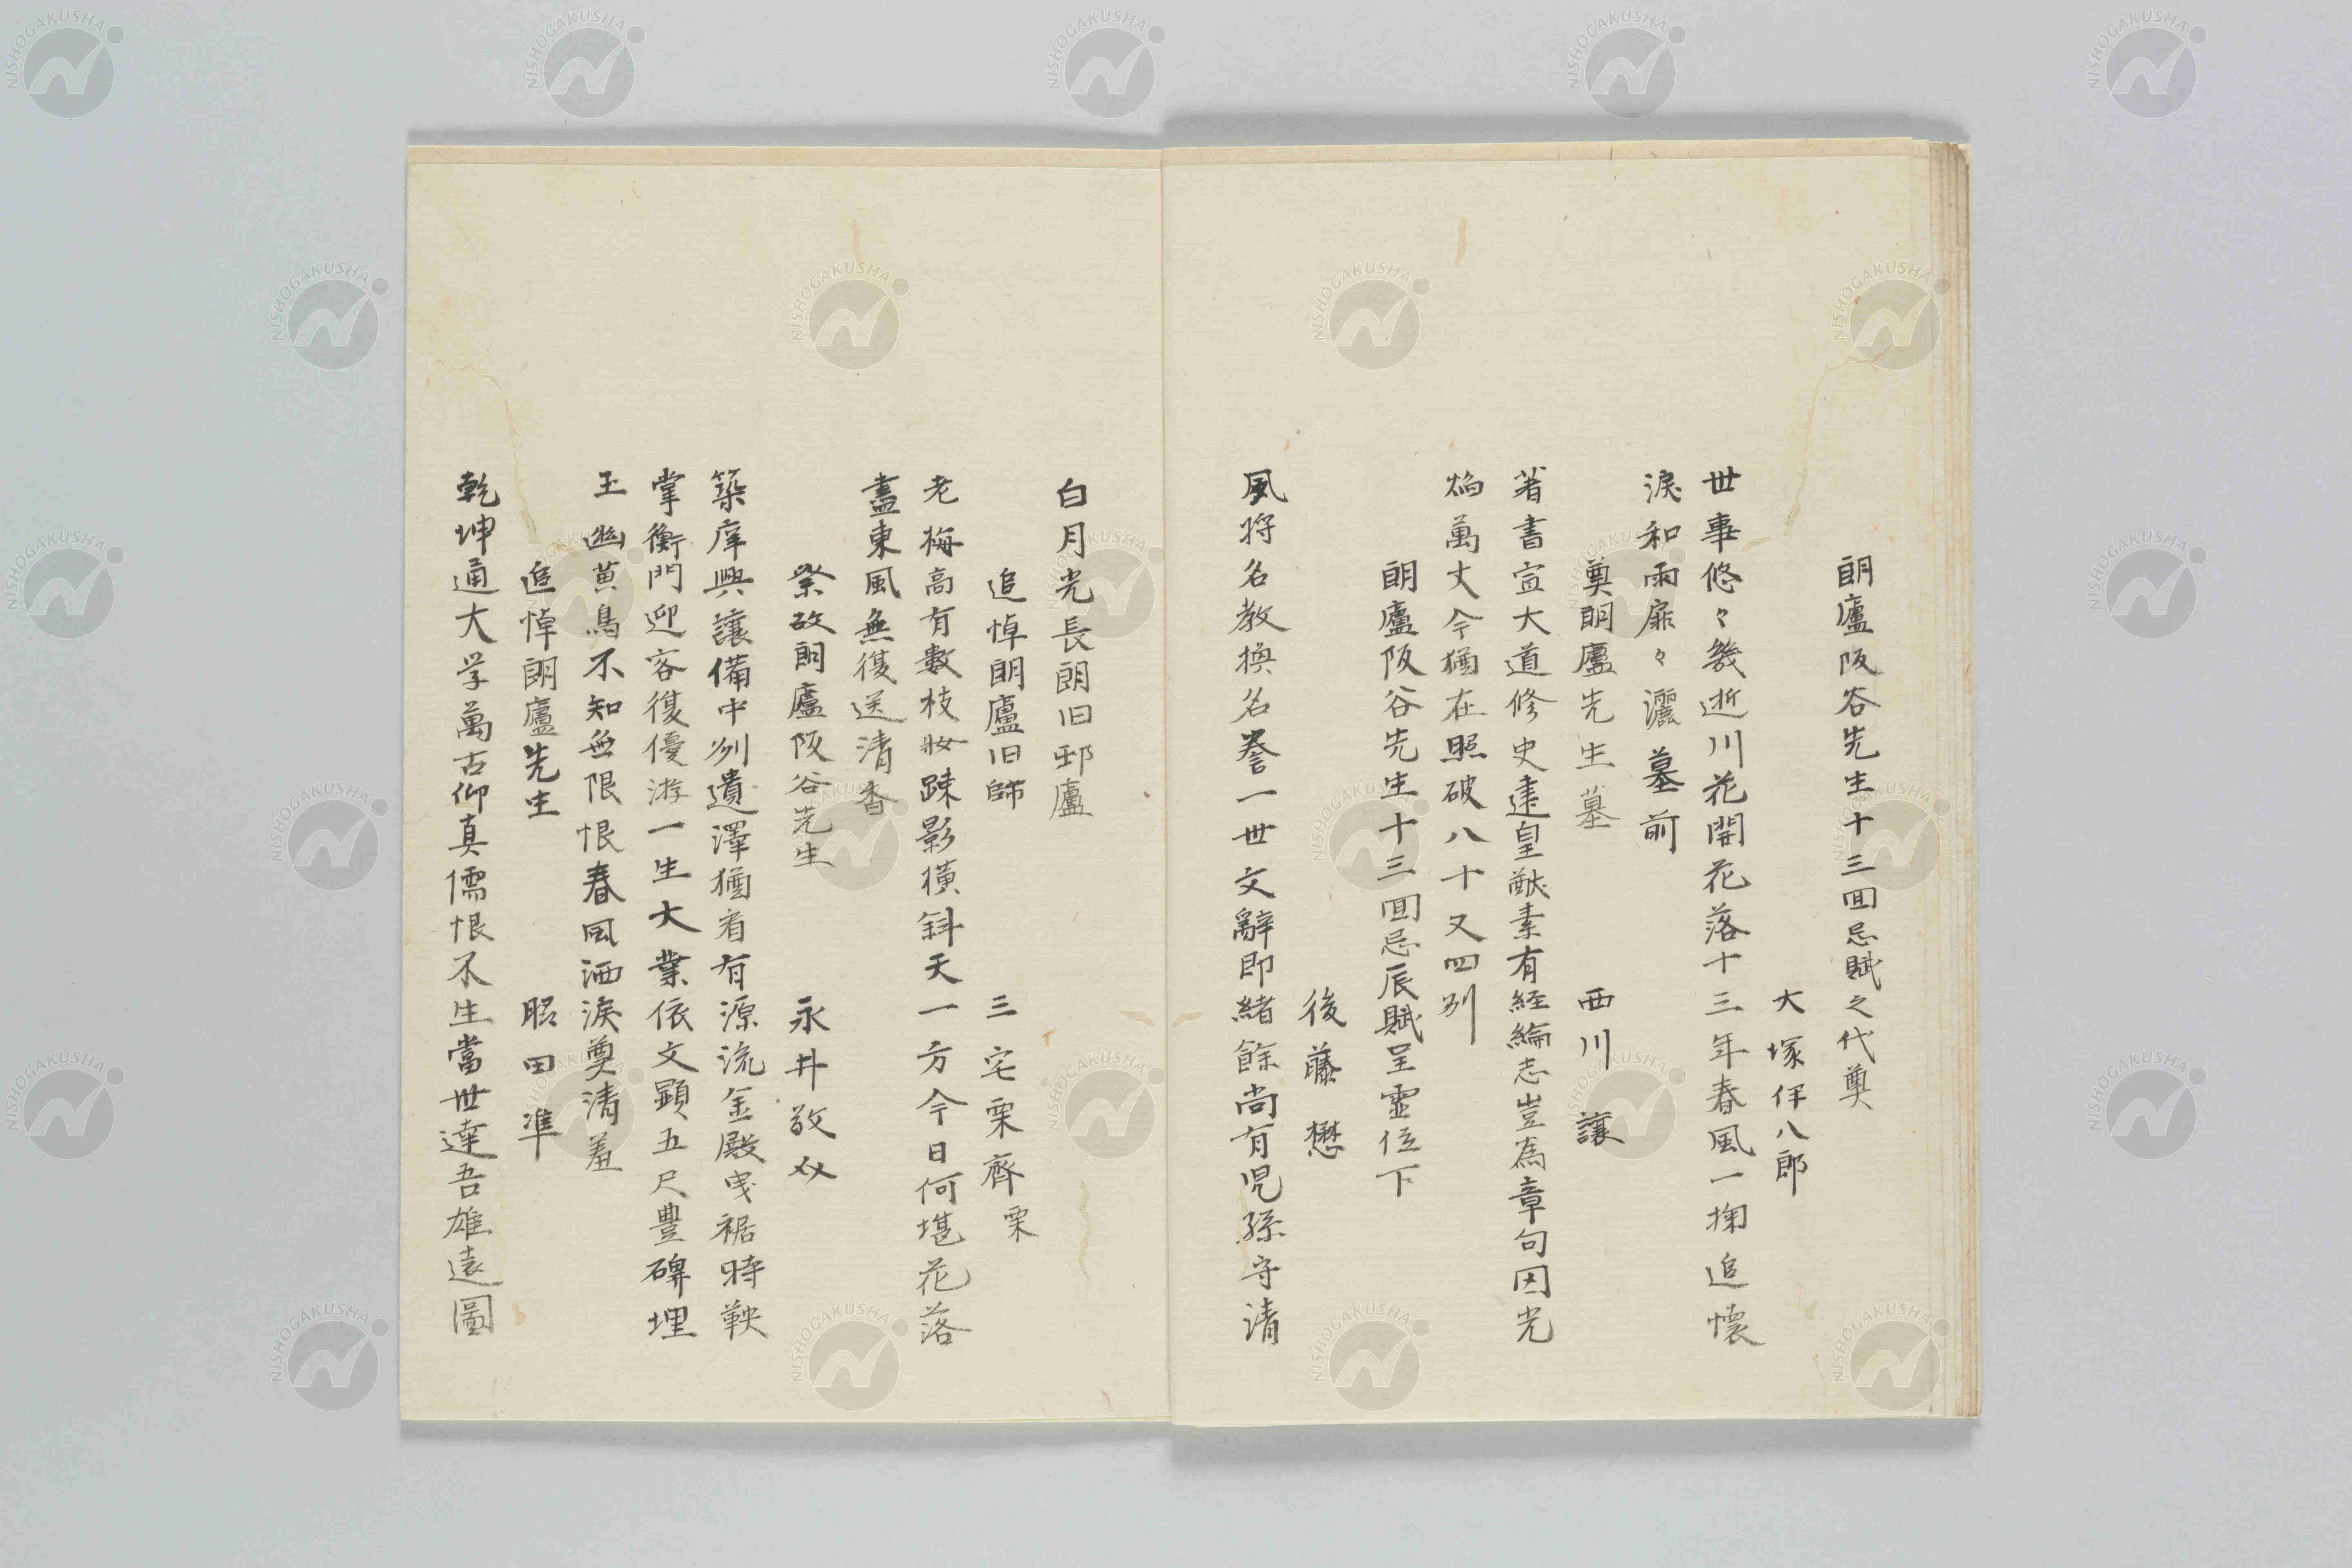 朗廬阪谷先生十三囬忌賦之代奠
大塚伴八郎
世事悠々幾逝川花開花落十三年春風一掬追懐
涙和雨扉々灑墓前
奠朗廬先生墓
西川讓
著書宣大道修史達皇猷素有経綸志豈為章句因光
焔萬丈今猶在照破八十又四州
朗廬阪谷先生十三囬忌辰賦呈霊位下
後藤懋
風将名教換名誉一世文辭即緒餘尚有児孫守清
白月光長朗旧邨廬
追悼朗廬旧師
三宅栗齊栗
老梅高有數枝妝踈影横斜天一方今日何堪花落
盡東風無復送清香
祭故朗廬阪谷先生
永井敬
築庠興讓備中州遺澤猶看有源流金殿曳裾時鞅
掌衡門迎客復優游一生大業依文顕五尺豊碑埋
玉幽黄鳥不知無限恨春風洒涙奠清羞
追悼朗廬先生
昭田準
乾坤通大学萬古仰真儒恨不生當世達吾雄遠圖
NISHOGAKUSHA